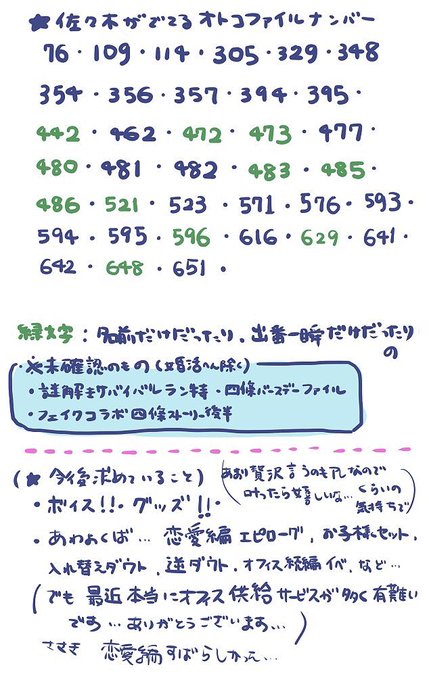 ★佐々木がでてるオトコファイルナンバー
76・109・114・305・329・348
354・356・357・394・395・
442・462・472・473・477・
480・481・482・483・485・
486・521・523・571・576・593・
594・595・596・616・629・641・
642・648・651・
緑文字:名前だけだったり、出番一瞬だけだったりの
※未確認のもの(婚活へん除く)
・謎解きサバイバルラン特・四條バースデーファイル
・フェイクコラボ四條ストーリー後半
(★今後求めていること)
(あまり贅沢言うのもアレなので
叶ったら嬉しいな…くらいの
気持ちで)
・ボイス!!・グッズ!!
・あわよくば…恋愛編エピローグ、お子様セット、
入れ替えダウト、逆ダウト、オフィス続編イベ、など…
(でも最近本当にオフィス供給サービスが多く有難い
です…ありがとうございます…)
ささき 恋愛編すばらしかった…